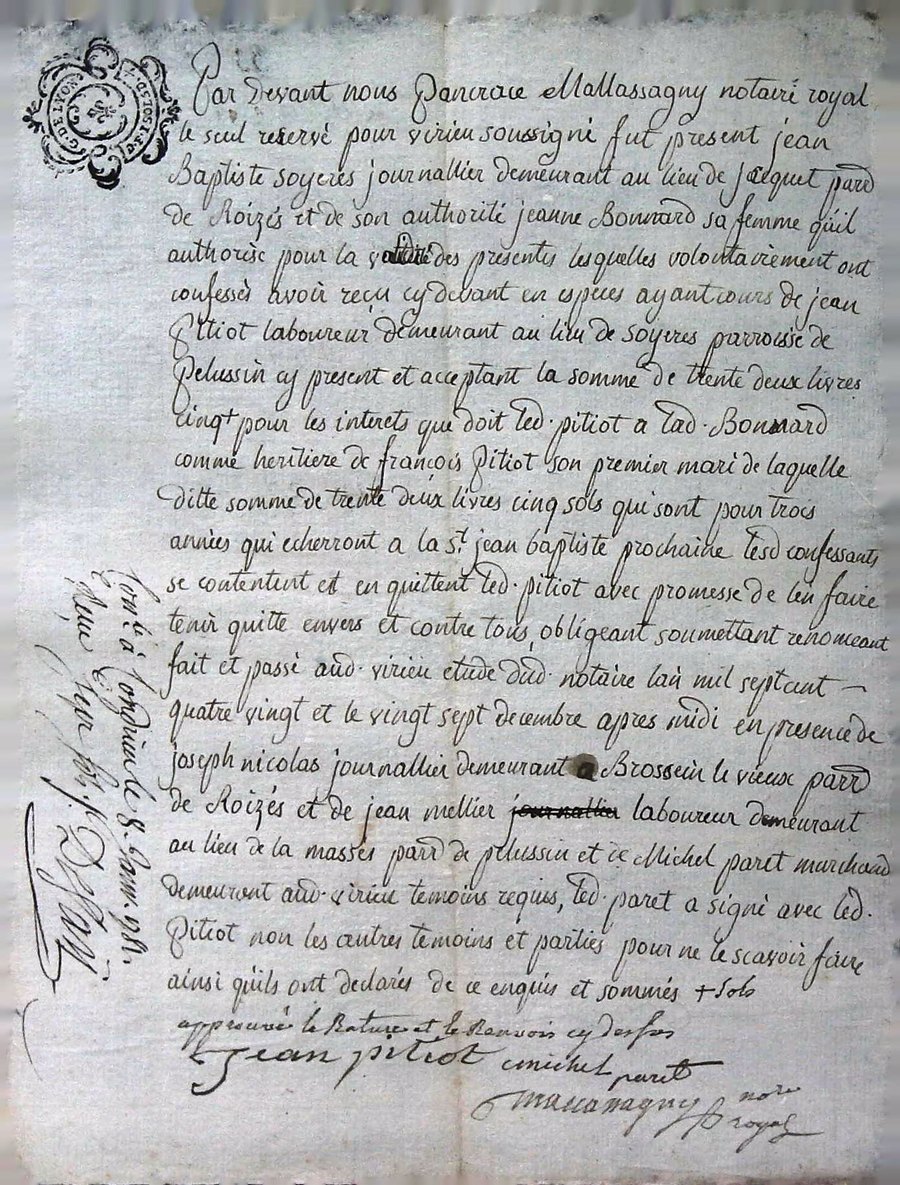 G. DE LYON
Par Devant nous Pancrace Mallassagny notairé royal
le seul reservé pour virieu soussigné fut present jean
Baptiste soyeres journallier demeurant au lieu de jacquet parr̃
de Roizés et de son authorité jeanne Bonnard sa femme qu'il
authorise pour la validité des presentes lesquelles volontairement ont
confessés avoir reçu cy devant en especes ayant cours de jean
Pitiot laboureur demeurant au lieu de soyeres parroisse de
Pelussin cy present et acceptant la somme de trente deux livres
cinq + pour les interets que doit led. pitiot a lad. Bonnard
comme heritiere de françois Pitiot son premier mari de laquelle
ditte somme de trente deux livres cinq sols qui sont pour trois
années qui echerront a la st. jean baptiste prochaine lesd confessants
se contentent et en quittent led. pitiot avec promesse de l'en faire
tenir quitte envers et contre tous, obligeant soumettant renonceant
fait et passé aud. virieu etude dud. notaire l'an mil sept cent
quatre vingt et le vingt sept decembre apres midi en presence de
joseph nicolas journallier demeurant a Brossein le vieux parr̃
de Roizés et de jean mellier journallier laboureur demeurant
au lieu de la masses parr̃ de pelussin et de Michel paret marchand
demeurant aud. virieu temoins requis, led. paret a signé avec led.
Pitiot non les autres temoins et parties pour ne le scavoir faire
ainsi qu'ils ont declarés de ce enquis et sommés + sols
approuvé la Rature et le Renvois cy dessus
jean pitiot michel paret
mallassagny nore
royal
Conlé à Condrieu le 8. Janv. 1781.
Reçu